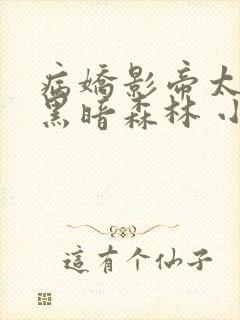 病嬌影帝太
黑暗森林 小
這有个仙子